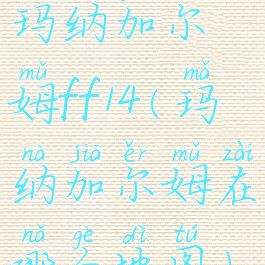 玛纳加尔
mǔ mǎ
姆ff14(玛
nà jiā ěr mǔ zài
纳加尔姆在
nǎ gè dì tú
哪个地图)